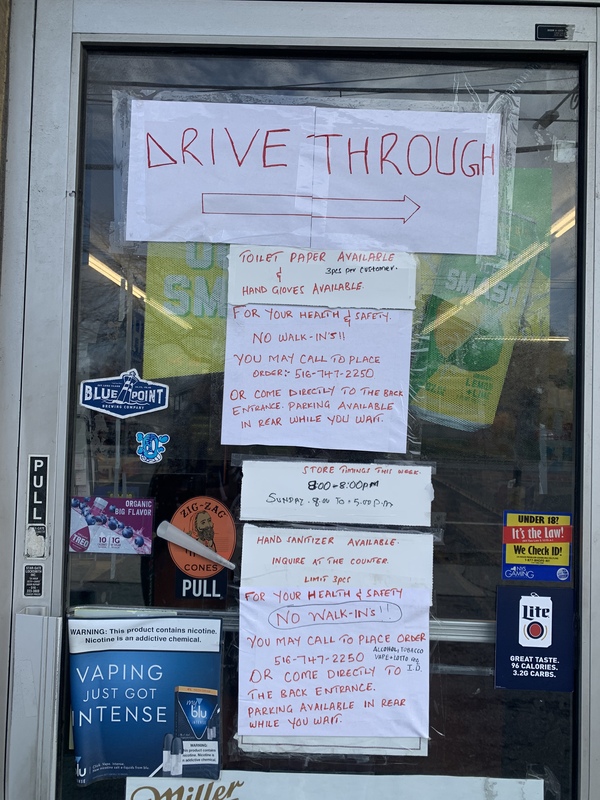 DRIVE THROUGH
TOILET PAPER AVAILABLE
3pcs per customer.
&
HAND GLOVES AVAILABLE.
FOR YOUR HEALTH & SAFETY.
NO WALK-IN'S!!
YOU MAY CALL TO PLACE
ORDER:- 516-747-2250
OR COME DIRECTLY TO THE BACK
ENTRANCE. PARKING AVAILABLE
IN REAR WHILE YOU WAIT.
SMASH
LEMON
LIME
BLUE POINT
BREWING COMPANY
STORE TIMINGS THIS WEEK.
8:00-8:00pm
SUNDAY-8:00 To 5:00 p.m
PULL
ORGANIC
BIG FLAVOR
ZIG-ZAG
CONES
PULL
HAND SANITIZER AVAILABLE.
INQUIRE AT THE COUNTER.
LIMIT 3pcs
FOR YOUR HEALTH & SAFETY
NO WALK-IN'S!!
YOU MAY CALL TO PLACE ORDER
516-747-2250
ALCOHOL, TOBACCO
VAPE+LOTTO req
I.D.
OR COME DIRECTLY TO
THE BACK ENTRANCE.
PARKING AVAILABLE IN REAR
WHILE YOU WAIT.
UNDER 18?
It's the Law!
We Check ID!
NYS
GAMING
Lite
GREAT TASTE.
96 CALORIES.
3.2G CARBS.
WARNING: This product contains nicotine.
Nicotine is an addictive chemical.
VAPING
JUST GOT
INTENSE
my
blu
WARNING:
Miller